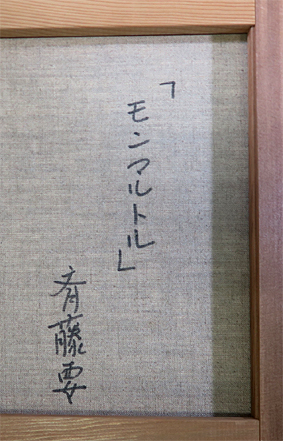 「モンマルトル」
斉藤要